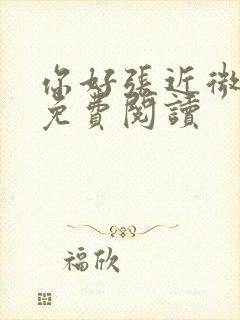 你好張近微
免費閱讀
福欣